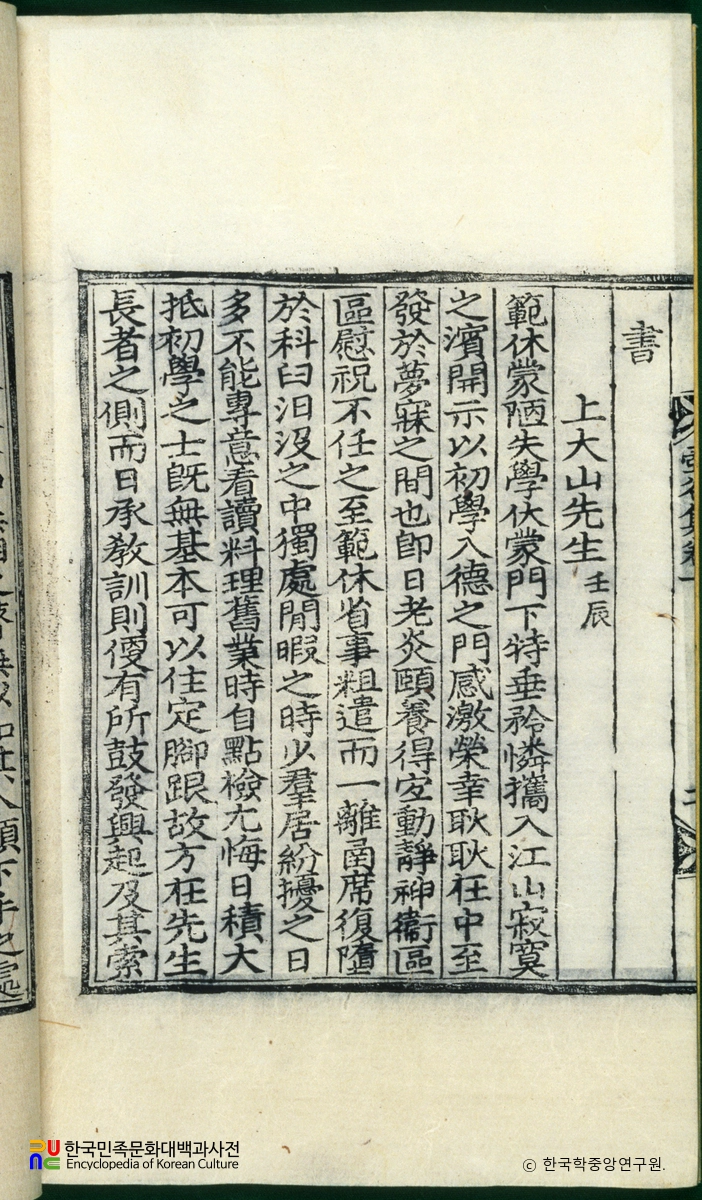 書
上大山先生 壬辰
範休蒙陋失學伏蒙門下特垂矜憐攜入江山寂寞
之濱開示以初學入德之門感激榮幸耿耿在中至
發於夢寐之間也卽日老炎頤養得宜動靜神衛區
區慰祝不任之至範休省事粗遣而一離函席復墮
於科臼汨沒之中獨處閒暇之時少羣居紛擾之日
多不能專意看讀料理舊業時自點檢尤悔日積大
抵初學之士旣無基本可以住定脚跟故方在先生
長者之側而日承敎訓則便有所鼓發興起及其索
한국민족문화대백과사전
Encyclopedia of Korean Culture
ⓒ 한국학중앙연구원.